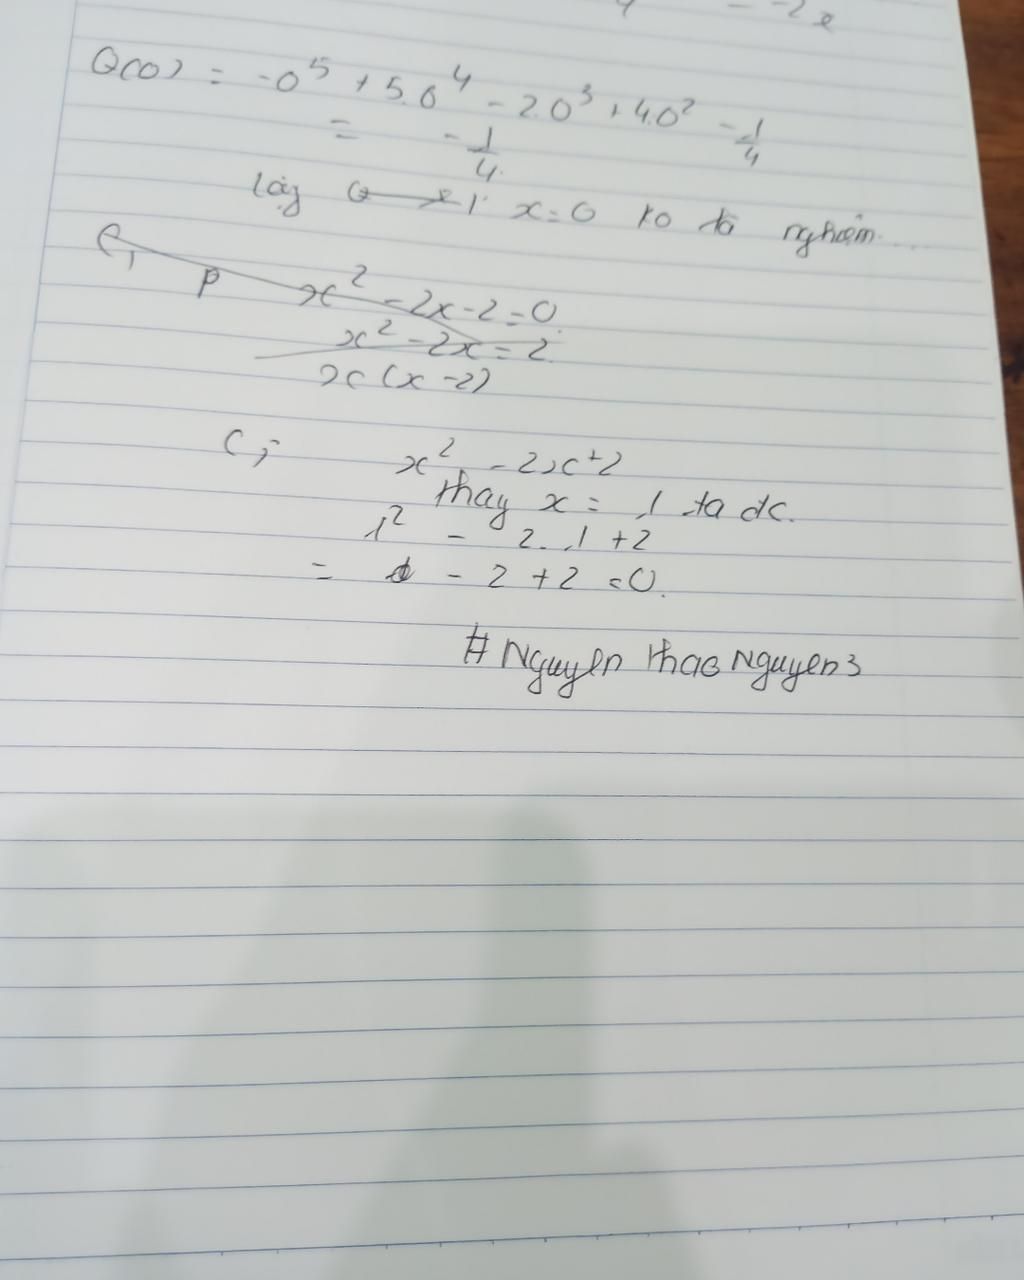 Q(0) = -0⁵ + 5.0⁴ - 2.0³ + 4.0² - 1/4
= - 1/4
x=0 ko là nghiệm...
P x² - 2x - 2 = 0
x² - 2x = 2
x (x - 2)
C; x² - 2x + 2
thay x = 1 ta dc.
1² - 2. 1 + 2
= - 2 + 2 = 0.
# Nguyen thao Nguyen3